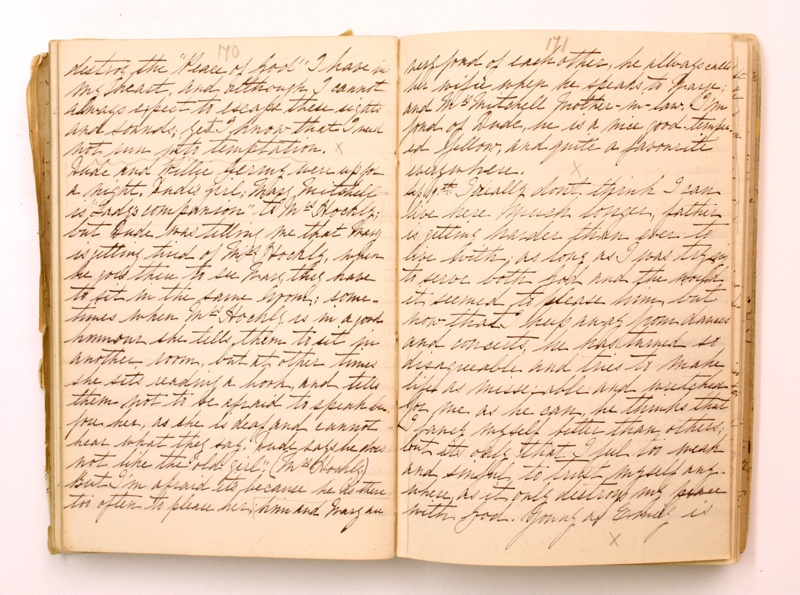 170
destroy the "Peace of God" I have in
my heart, and, although I cannot
always expect to escape these sights
and sounds, yet I know that I need
not run into temptation. x
Dude and Willie were up for
a night, Dude's girl, Mary Mitchell
is "Lady's companion" to Mrs Hockly;
but Dude was telling me that Mary
is getting tired of Mrs Hockly, when
he goes then to see Mary they have
to sit in the same room; some-
times when Mrs Hockly is in a good
humour she tells them to sit in
another room, but at other times
she sits reading a book, and tells
them not to be afraid to speak be
fore her, as she is deaf and cannot
hear what they say. Dude says he does
not like the "old girl"; (Mrs Hockly)
But I'm afraid its because he goes there
too often to please her, him and Mary are
171
very fond of each other, he allways calls
her wifie when he speaks to
and Mrs Mitchell Mother-in-law. I'm
fond of Dude, he is a nice good temper-
ed fellow, and quite a favourite
everywhere. x
9th I really dont think I can
live here much longer, father
is getting harder than ever to
live with; as long as I was trying
to serve both God and the world
it seemed to please him, but
now that I keep away from dances
and concerts, he has turned so
disagreeable and tries to make
life as miserable and wretched
for me as he can, he thinks that
I fancy myself better than others,
but its only that I feel too weak
and sinful to trust myself any-
where, as it only destroys my peace
with God. Young as Emily is
x